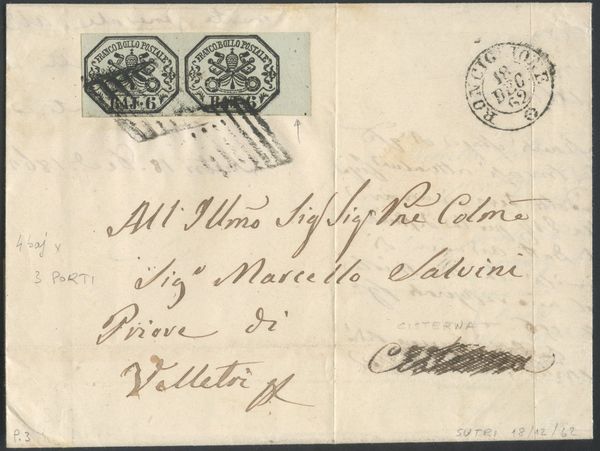 FRANCO BOLLO POSTALE
BAJ. 6
FRANCO BOLLO POSTALE
BAJ. 6
RONCIGLIONE
18
DEC
62
All' Illmo Sig Sig Pne Colme
Sigo Marcello Salvini
4 baj x
3 PORTI
Priore di
CISTERNA
Velletri
P.3
SUTRI 18/12/62